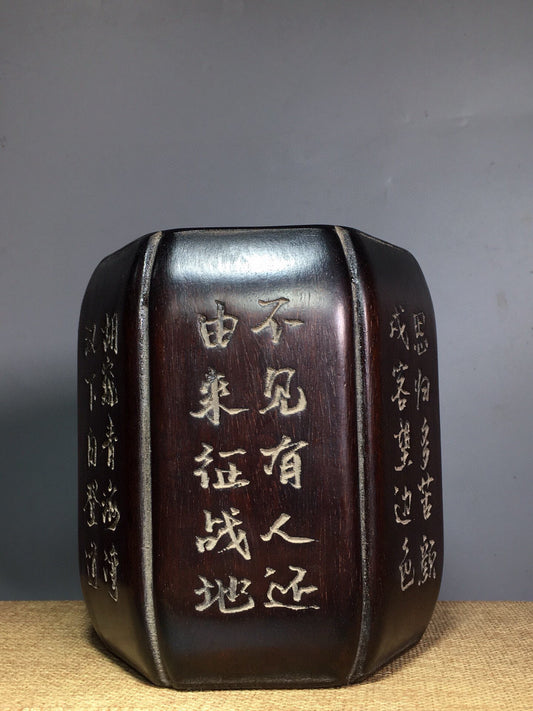 汉下白登道
胡窥青海湾
由来征战地
不见有人还
戍客望边色
思归多苦颜